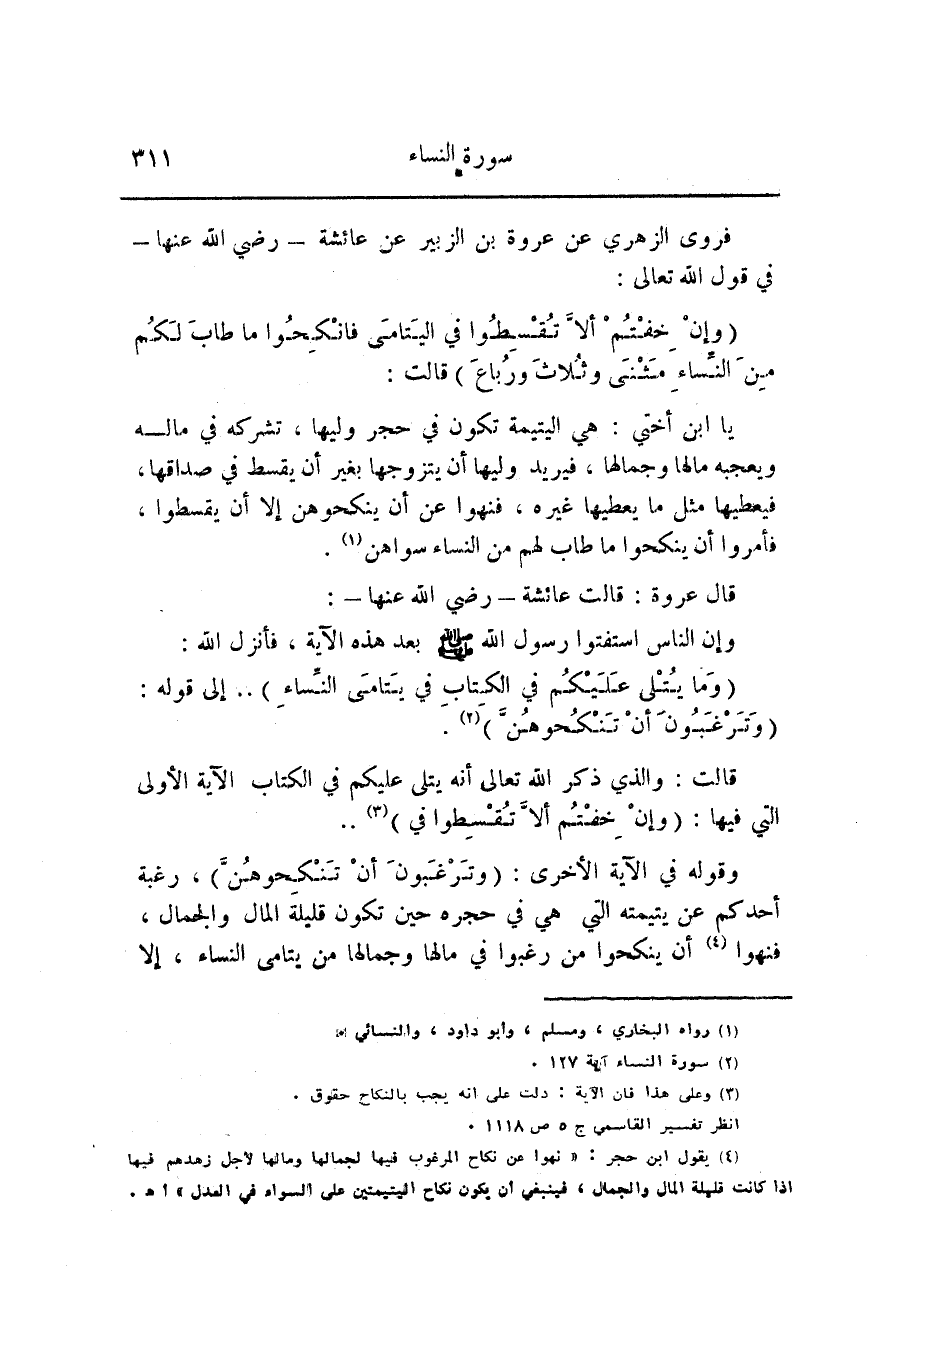 سورة النساء ٣١١
فروى الزهري عن عروة بن الزبير عن عائشة – رضي الله عنها –
في قول الله تعالى :
( وإنْ خِفْتُمْ ألاَّ تُقْسِطُوا في اليَتَامَى فانْكِحُوا ما طابَ لَكُم
مِنَ النِّساءِ مَثْنَى وثُلاثَ ورُباعَ ) قالت :
يا ابن أختي : هي اليتيمة تكون في حجر وليها ، تشركه في مالـــه
ويعجبه مالها وجمالها ، فيريد وليها أن يتزوجها بغير أن يقسط في صداقها ،
فيعطيها مثل ما يعطيها غيره ، فنهوا عن أن ينكحوهن إلا أن يقسطوا ،
فأمروا أن ينكحوا ما طاب لهم من النساء سواهن (١) .
قال عروة : قالت عائشة – رضي الله عنها – :
وإن الناس استفتوا رسول الله ﷺ بعد هذه الآية ، فأنزل الله :
( وَما يُتْلى عَلَيْكُم في الكِتابِ في يَتَامَى النِّساءِ ) .. إلى قوله :
( وَتَرْغَبُونَ أنْ تَنْكُحوهُنَّ )(٢) .
قالت : والذي ذكر الله تعالى أنه يتلى عليكم في الكتاب الآية الأولى
التي فيها : ( وإنْ خِفْتُم ألاَّ تُقْسِطوا في )(٣) ..
وقوله في الآية الأخرى : ( وتَرْغَبونَ أنْ تَنْكِحوهُنَّ ) ، رغبة
أحدكم عن يتيمته التي هي في حجره حين تكون قليلة المال والجمال ،
فنهوا (٤) أن ينكحوا من رغبوا في مالها وجمالها من يتامى النساء ، إلا
(١) رواه البخاري ، ومسلم ، وأبو داود ، والنسائي
(٢) سورة النساء آية ١٢٧ .
(٣) وعلى هذا فان الآية : دلت على انه يجب بالنكاح حقوق .
انظر تفسير القاسمي ج ٥ ص ١١١٨ .
(٤) يقول ابن حجر : « نهوا عن نكاح المرغوب فيها لجمالها ومالها لأجل زهدهم فيها
اذا كانت قليلة المال والجمال ، فينبغي أن يكون نكاح اليتيمتين على السواء في العدل » ا هـ .